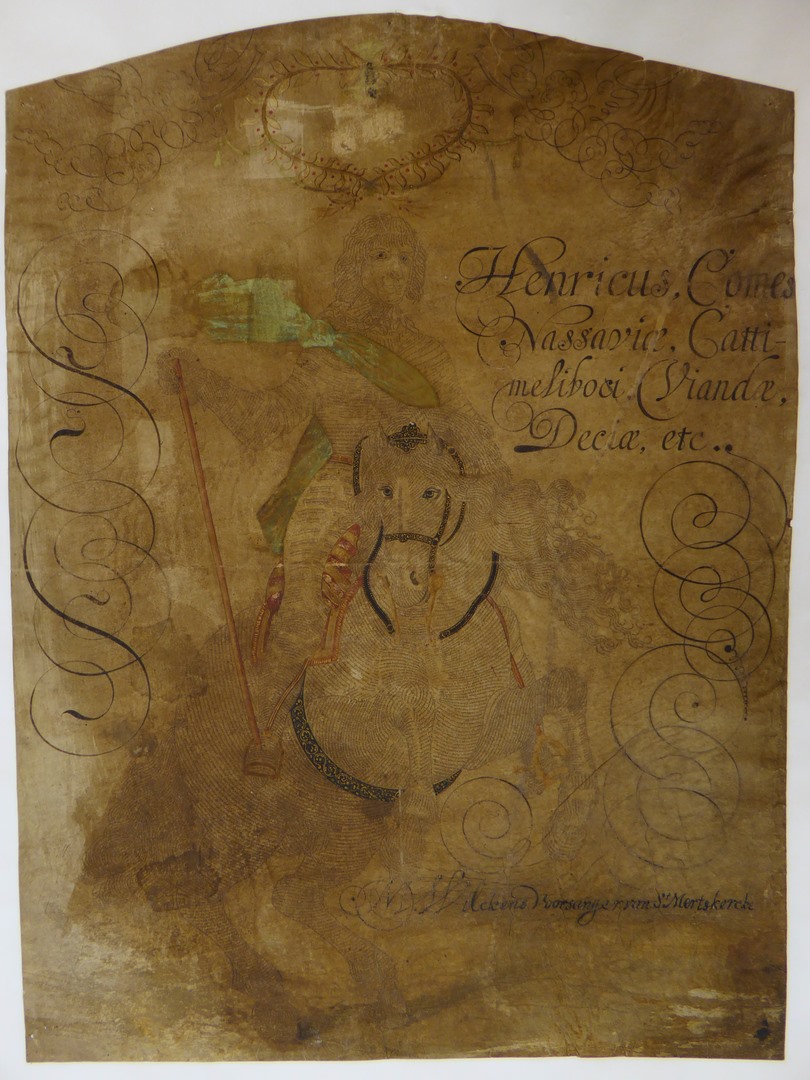 Henricus, Comes
Nassaviæ, Catti-
meliboci, Viandæ,
Deciæ, etc..
Wilckens Vorsanger van St Mertskercke